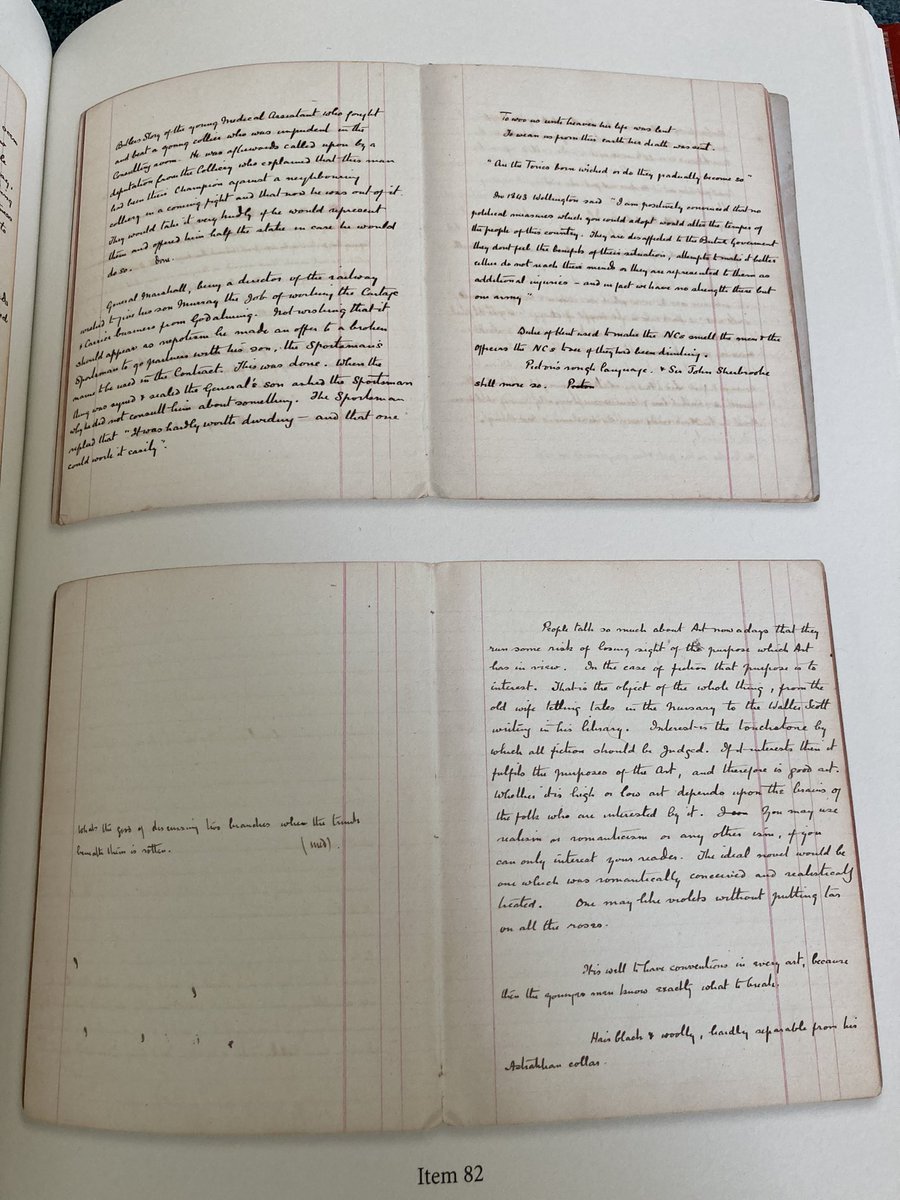 Butlers Story of the young Medical Assistant who fought
and beat a young collier who was impudent in the
Consulting room. He was afterwards called upon by a
deputation from the Colliery who explained that this man
had been their Champion against a neighbouring
colliery in a coming fight and that now he was out of it.
They would take it very kindly if he would represent
them and offered him half the stake in case he would
do so. Done.
General Marshall, being a director of the railway
wished to give his son Murray the Job of working the Cartage
& Carrier business from Godalming. Not wishing that it
should appear as nepotism he made an offer to a broken
Sportsman to go partners with his son, the Sportsman's
name to be used in the Contract. This was done. When the
thing was signed & sealed the General's son asked the Sportsman
why he did not consult him about something. The Sportsman
replied that "It was hardly worth dividing – and that one
could work it easily".
To woo us unto heaven his life was lent
To wean us from this earth his death was sent.
"Are the Tories born wicked or do they gradually become so"
In 1843 Wellington said "I am positively convinced that no
political measures which you could adopt would alter the temper of
the people of this country. They are disaffected to the British Government
they dont feel the benefits of their situation, attempts to make it better
either do not reach their minds or they are represented to them as
additional injuries – and in fact we have no strength there but
our army"
Duke of Kent used to make the NCs smell the men & the
Officers the NCs to see if they had been drinking.
Picton's rough language. & Sir John Sherbrooke
still more so. Picton
Whats the good of discussing his branches when the trunk
beneath them is rotten. (Med).
People talk so much about Art nowadays that they
run some risk of losing sight of the purpose which Art
has in view. In the case of fiction that purpose is to
interest. That is the object of the whole thing, from the
old wife telling tales in the Nursary to the Walter Scott
writing in his library. Interest is the touchstone by
which all fiction should be Judged. If it interests then it
fulfils the purposes of the Art, and therefore is good art.
Whether it is high or low art depends upon the brains of
the folk who are interested by it. You may use
realism or romanticism or any other ism, if you
can only interest your reader. The ideal novel would be
one which was romantically conceived and realistically
treated. One may like violets without putting tar
on all the roses.
It is well to have conventions in every art, because
then the younger men know exactly what to break.
Hair black & woolly, hardly separable from his
Astrakhan collar.
Item 82